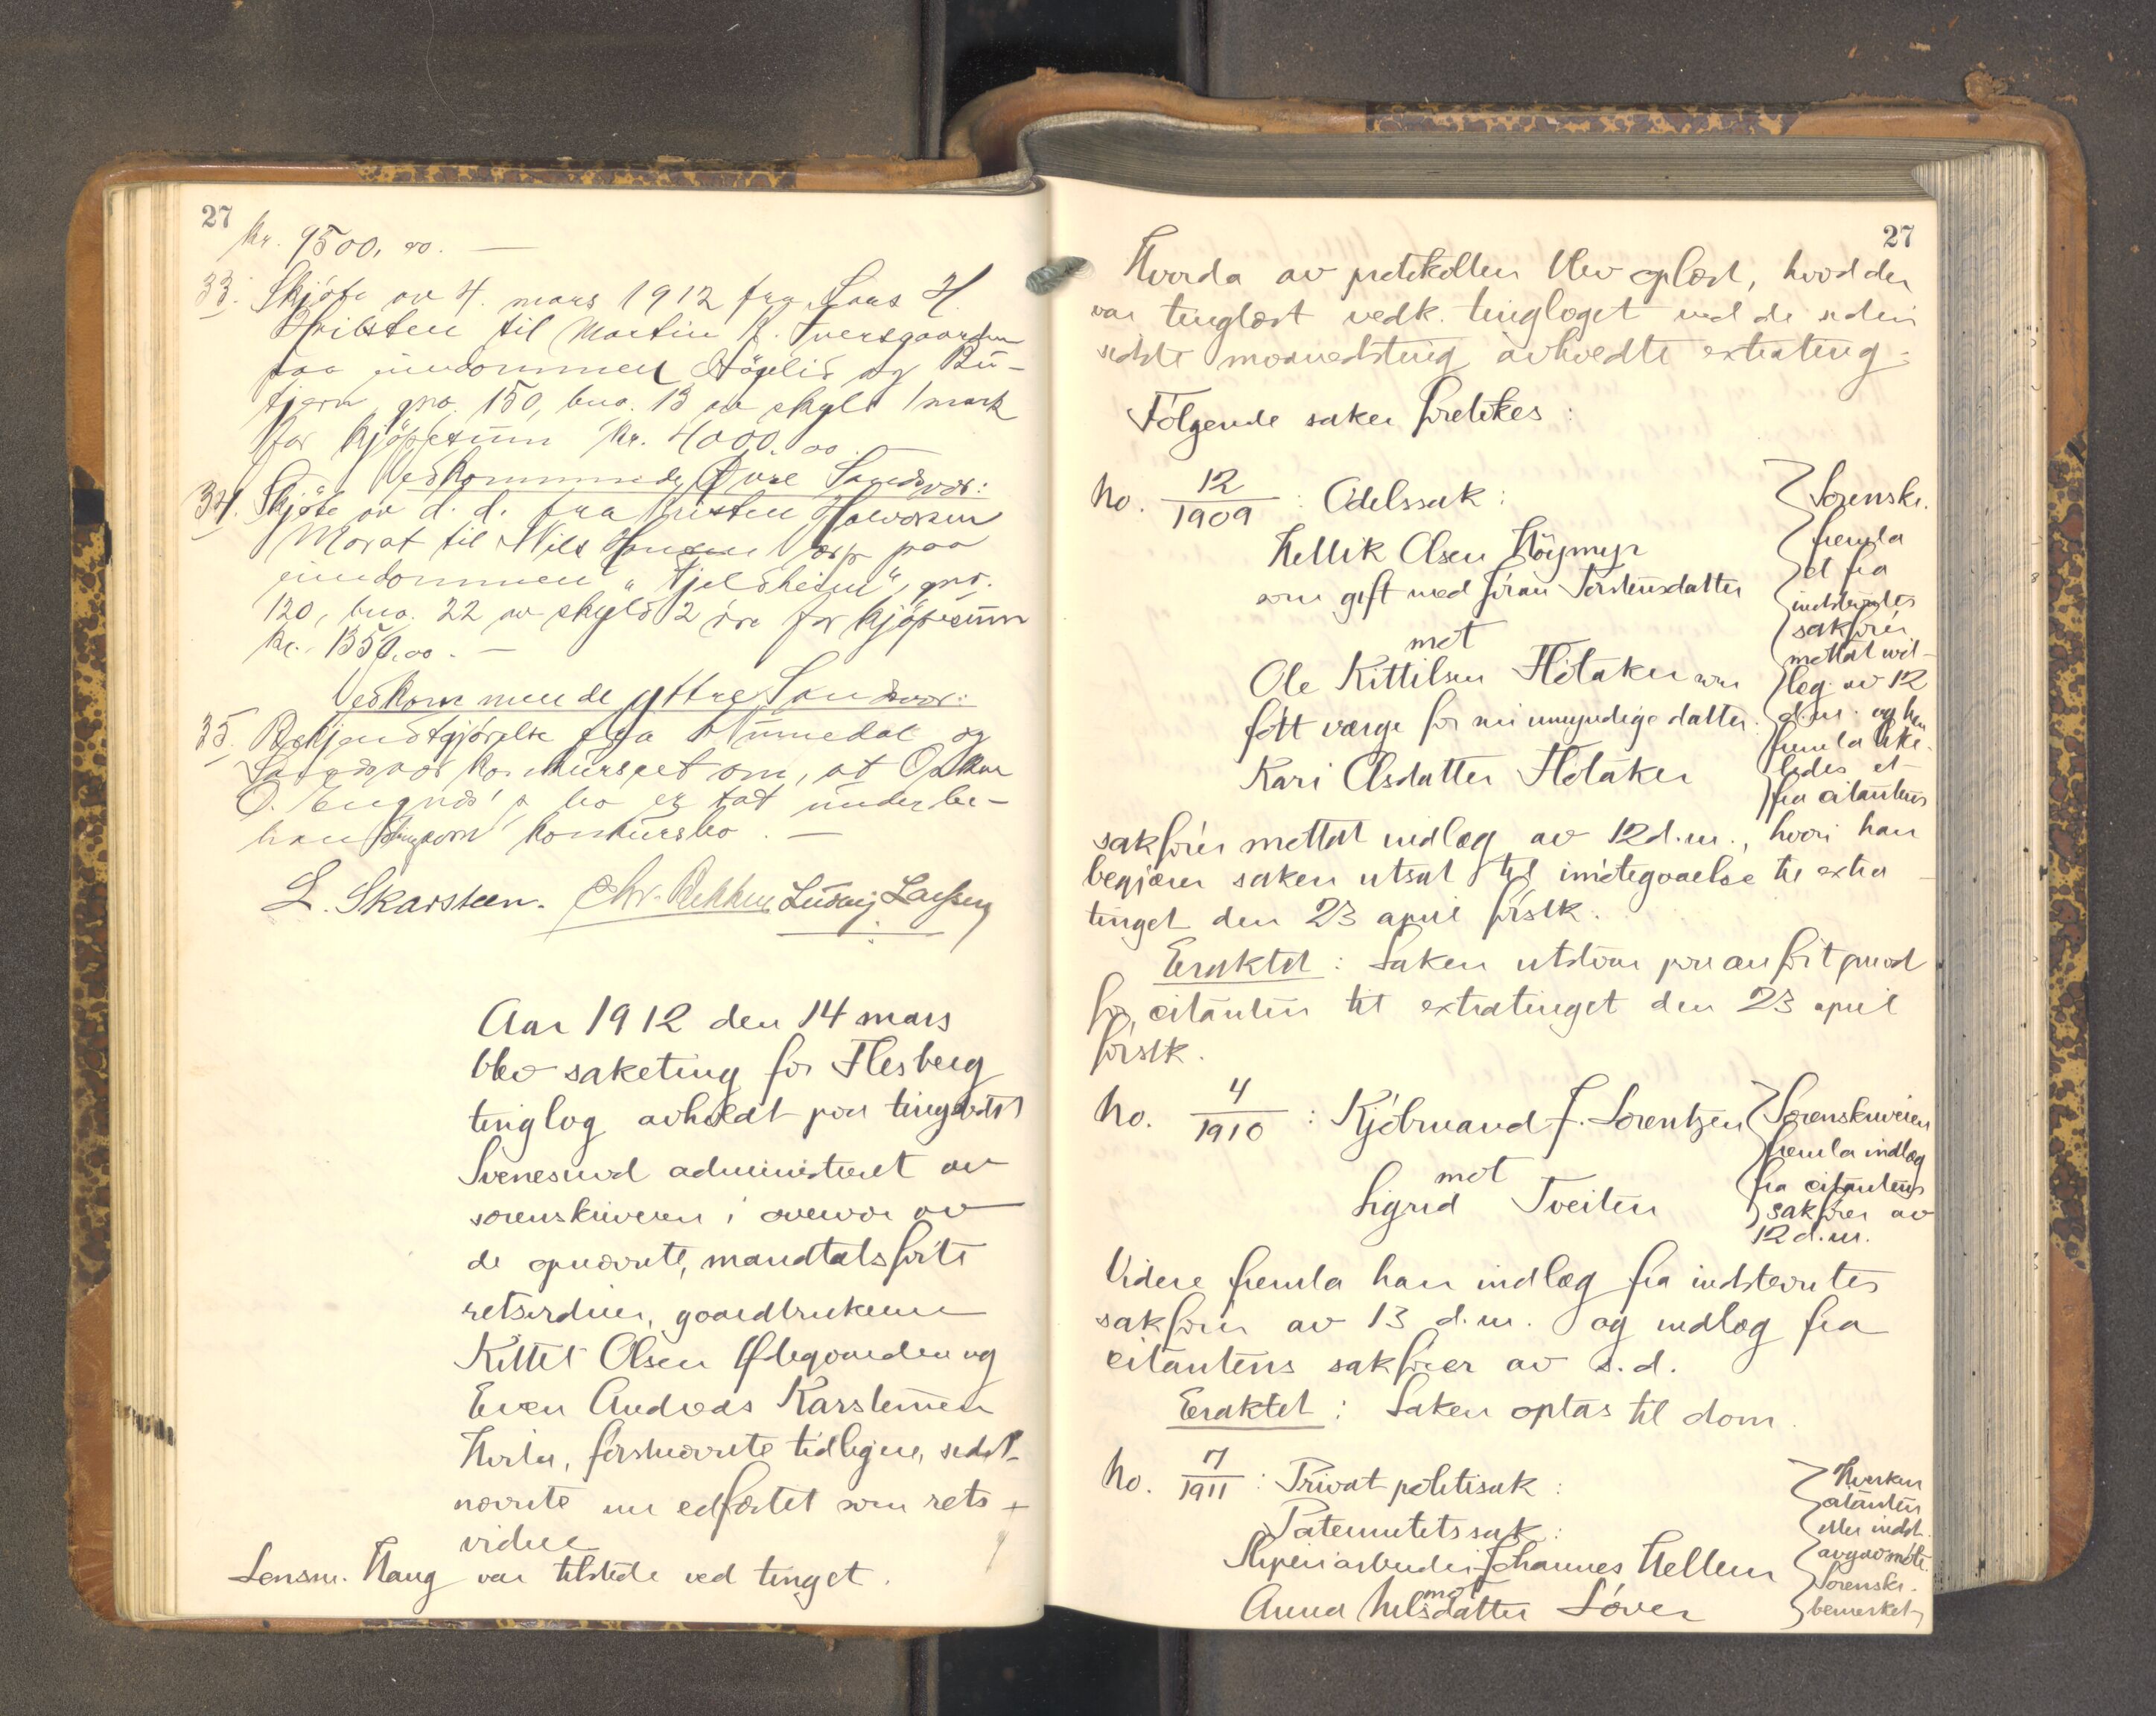 27
Kr. 9500,00. —
33. Skjöte av 4. mars 1912 fra Lars H.
til Martin
paa eiendommen og Bu-
tjern gno. 150, bno. 13 av skyld 1 mark
for kjöpesum kr. 4000.00
Vedkommende Övre Sandsvær:
34. Skjöte av d. d. fra Kristen Halvorsen
Morat til Nils Hansen paa
eiendommen "Fjeldheim", gno.
120, bno. 22 av skyld 2 öre for kjöpesum
kr. 1350.00. —
Vedkommende yttre Sandsvær:
35. Bekjendtgjörelse fra Numedal og
Sandsvær konkursret om, at Oskar
O. Engnes's bo er tat under be-
handling som konkursbo. —
L. Skarsteen. Chr. Ludvig Larsen
Aar 1912 den 14 mars
blev saketing for Flesberg
tinglag avholdt paa tingstedet
Svenesund administreret av
sorenskriveren i overvær av
de opnævnte, mandtalsförte
retsvidner, gaardbrukerne
Kittel Olsen Ødegaarden og
Even Andreas Karstensen
förstnævnte tidligere, sidst-
nævnte nu edfæstet som rets-
vidne
Lensm. Haug var tilstede ved tinget.
27
Hvorda av protokollen blev oplæst, hvad der
var tinglæst vedk. tinglaget ved de siden
sidste maanedsting avholdte extrating.
Fölgende saker foretokes:
No. 12/1909 : Odelssak:
Hellik Olsen Höymyr
som gift med Jöran Torstensdatter
mot
Ole Kittilsen Flötaker som
födt værge for sin umyndige datter
Kari Olsdatter Flötaker
Sorenskr.
fremla
et fra
indstevntes
sakförer
mottat ind-
læg av 12
d.m. og han
fremla like-
ledes et
fra citantens
sakförer mottat indlæg av 12 d.m., hvori han
begjærer saken utsat til imötegaaelse til extra-
tinget den 23 april förstk.
Eraktet: Saken utstaar paa anfört grund
for citanten til extratinget den 23 april
förstk.
No. 4/1910 : Kjöbmand J. Lorentzen
mot
Sigrid Tveiten
Sorenskriveren
fremla indlæg
fra citantens
sakförer av
12 d.m.
Videre fremla han indlæg fra indstevntes
sakförer av 13 d.m. og indlæg fra
citantens sakförer av s.d.
Eraktet: Saken optas til dom.
No. 7/1911 : Privat politisak:
Paternitetssak:
Sliperiarbeider Johannes Hellem
mot
Anna Nilsdatter Löver
Hverken
citanten
eller indst.
avgav möte.
Sorenskr.
bemerket,